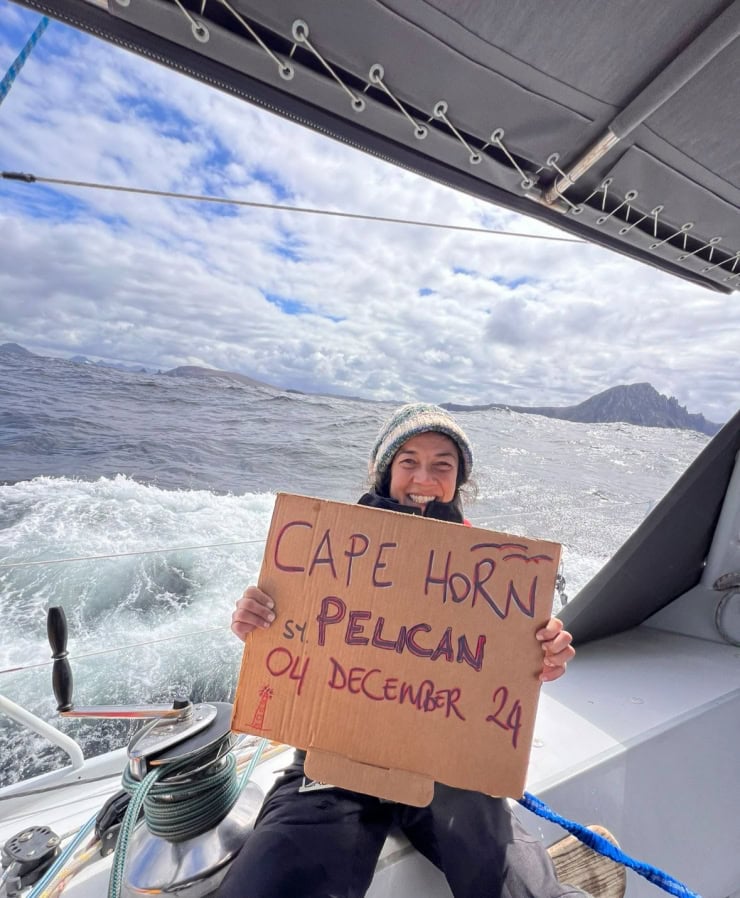 CAPE HORN
SY. PELICAN
04 DECEMBER 24